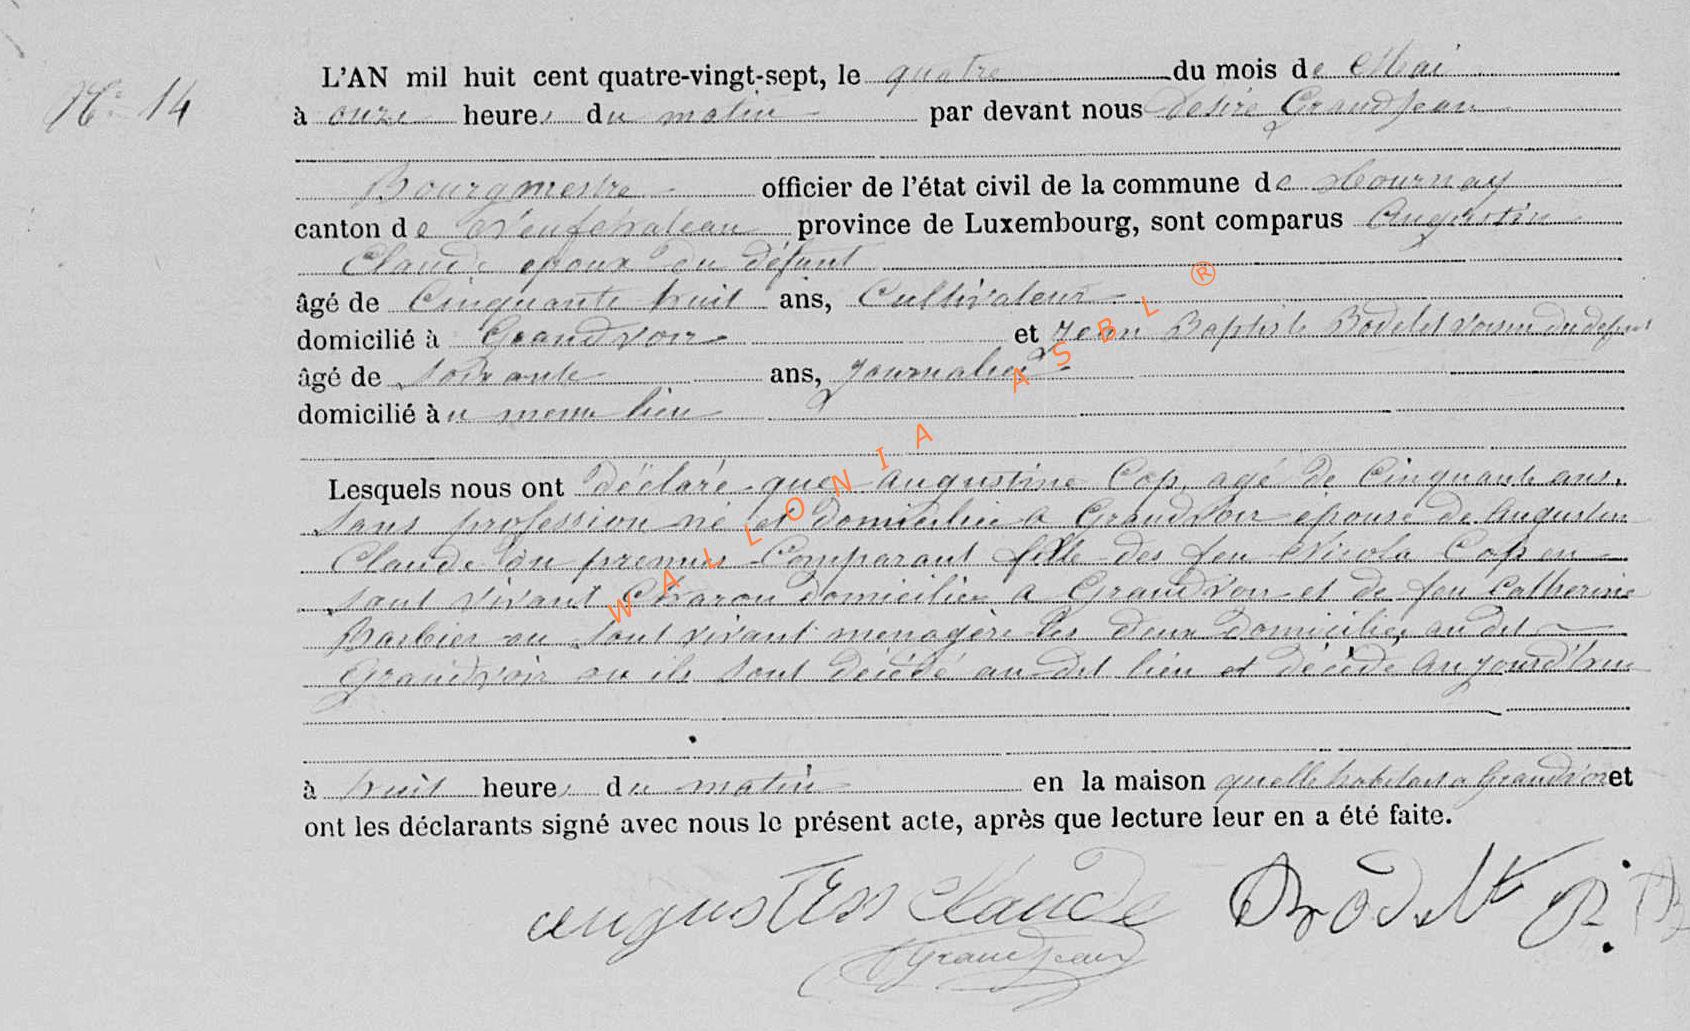 N° 14
L'AN mil huit cent quatre-vingt-sept, le quatre du mois de Mai
à onze heures du matin par devant nous Désiré Grandjean
Bourgmestre officier de l'état civil de la commune de Tournay
canton de Neufchateau province de Luxembourg, sont comparus Augustin
Claude epoux du défunt
âgé de Cinquante huit ans, Cultivateur
domicilié à Grandvoir et Jean Baptiste Bodelet voisin du defunt
âgé de soixante ans, Journalier
domicilié à u meme lieu
Lesquels nous ont déclaré que Augustine Cop agé de Cinquante ans,
sans profession né et domicilié a Grandvoir epouse de Augustin
Claude du premier Comparant fille des feu Nicola Cop en
sont vivant Charon domicilie a Grandvoir et de feu Catherine
Barbier en sont vivant menagère les deux domicilie, au dit
Grandvoir ou ils sont décédé au dit lieu et décède aujourd'hui
à huit heures du matin en la maison quelle habitait a Grandvoir et
ont les déclarants signé avec nous le présent acte, après que lecture leur en a été faite.
augustin Claude Brodelet J. B
D Grandjean
WALLONIA ASBL ®